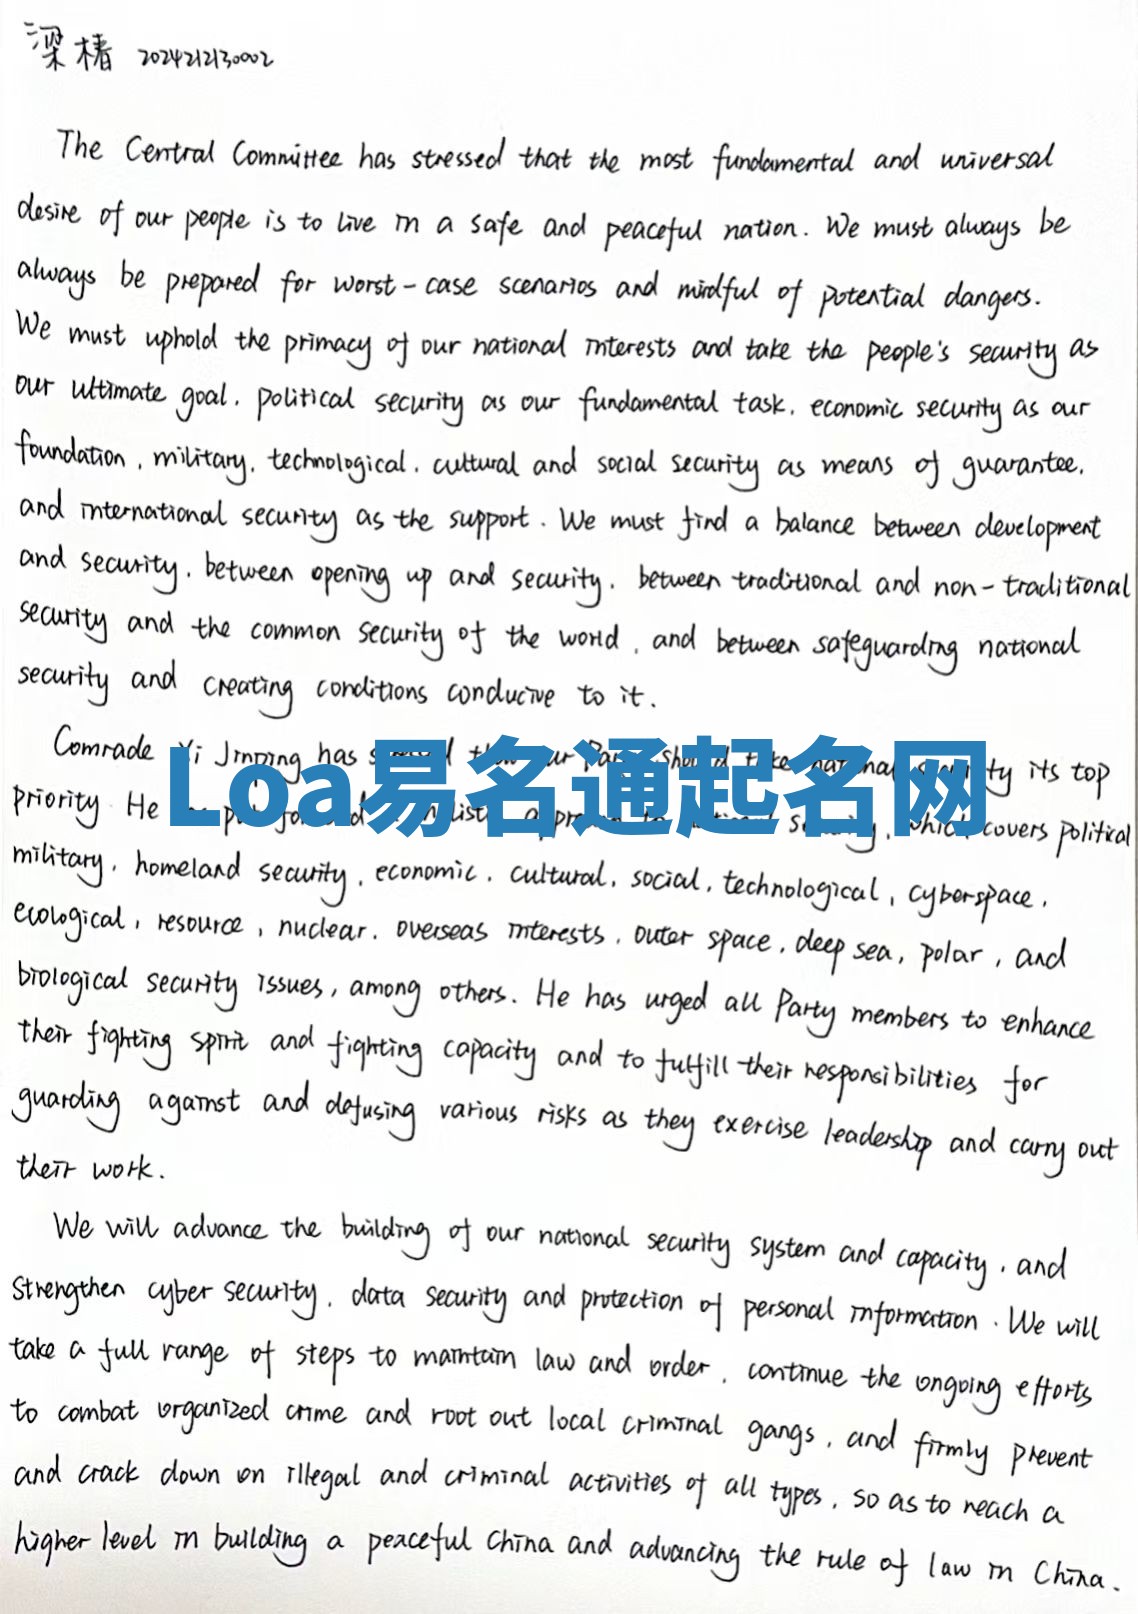 梁椿 2024212130002
The Central Committee has stressed that the most fundamental and universal
desire of our people is to live in a safe and peaceful nation. We must always be
always be prepared for worst-case scenarios and mindful of potential dangers.
We must uphold the primacy of our national interests and take the people's security as
our ultimate goal, political security as our fundamental task, economic security as our
foundation, military, technological, cultural and social security as means of guarantee,
and international security as the support. We must find a balance between development
and security, between opening up and security, between traditional and non-traditional
security and the common security of the world, and between safeguarding national
security and creating conditions conducive to it.
Comrade Xi Jinping has its top
Loa易名通起名网
priority. He which covers political
military, homeland security, economic, cultural, social, technological, cyberspace,
ecological, resource, nuclear, overseas interests, outer space, deep sea, polar, and
biological security issues, among others. He has urged all Party members to enhance
their fighting spirit and fighting capacity and to fulfill their responsibilities for
guarding against and defusing various risks as they exercise leadership and carry out
their work.
We will advance the building of our national security system and capacity, and
strengthen cyber security, data security and protection of personal information. We will
take a full range of steps to maintain law and order, continue the ongoing efforts
to combat organized crime and root out local criminal gangs, and firmly prevent
and crack down on illegal and criminal activities of all types, so as to reach a
higher level in building a peaceful China and advancing the rule of law in China.